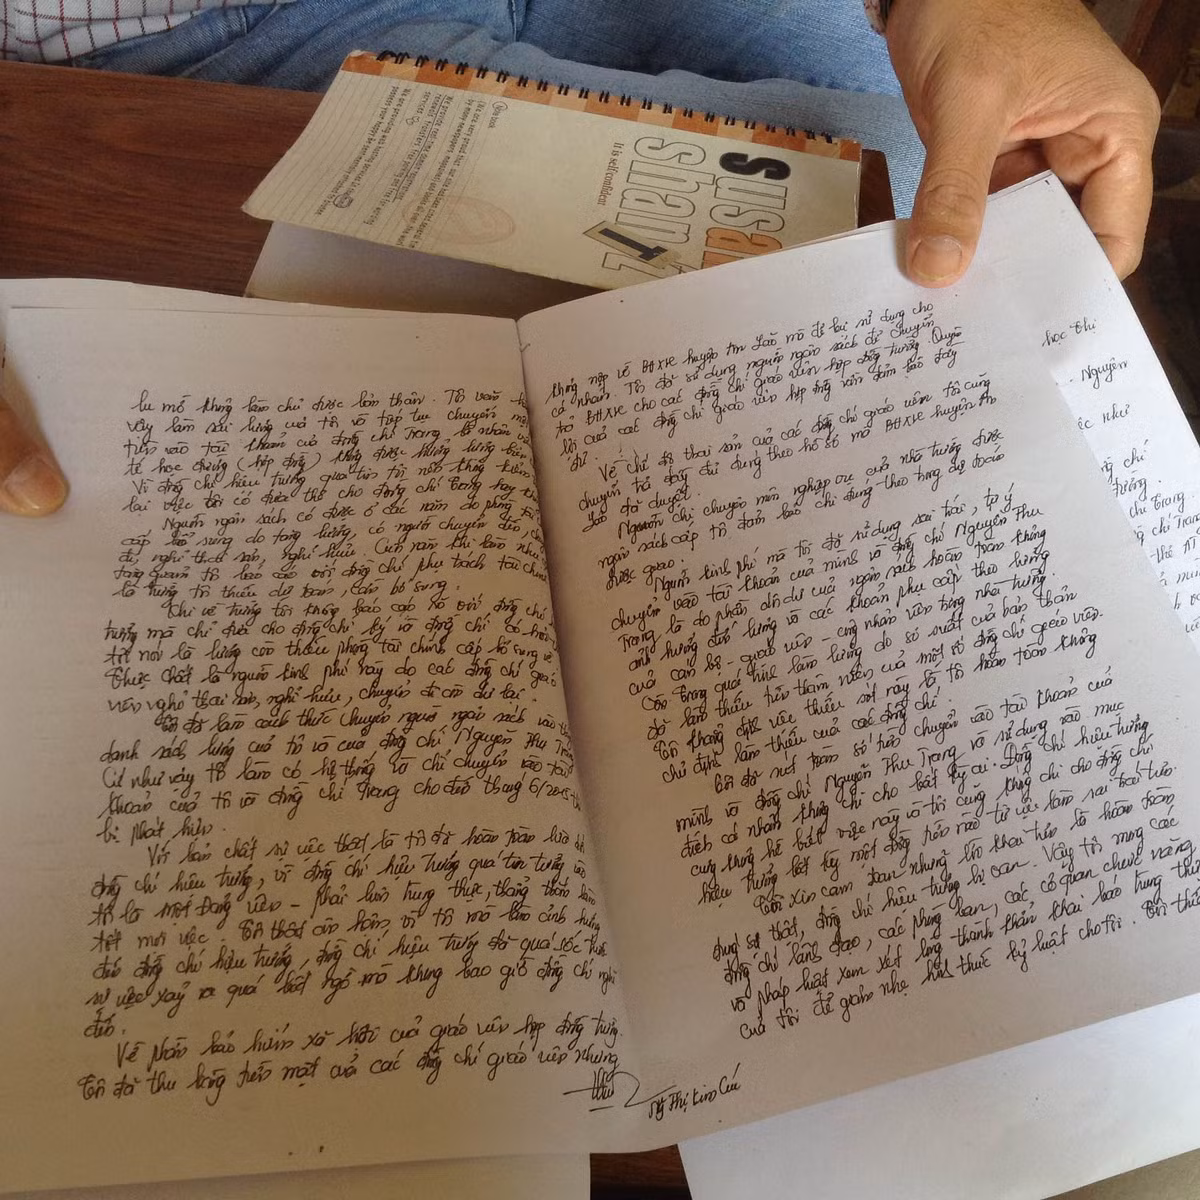 Note book
It is self confident
susa
shant
lu mờ không làm chủ được bản thân. Tôi vẫn
vậy làm sai lương của tôi và tiếp tục chuyển
tiền vào tài khoản của đồng chí Trang là nhân viên
tế học đường (hợp đồng) không được hưởng lương biên
Vì đồng chí hiệu trưởng quá tin tôi nên không kiểm
lại việc tôi có đưa thẻ cho đồng chí Trang hay
Nguồn ngân sách có được ở các năm do phòng tài
cấp bổ sung do tăng lương, có người chuyển đến,
đi, nghỉ thai sản, nghỉ hưu. Cuối năm khi làm
tương quan tôi báo cáo với đồng chí phụ trách tài chính
là lương tôi thiếu dự toán, cần bổ sung.
Chi về trường tôi không báo cáo rõ với đồng chí
trưởng mà chỉ đưa cho đồng chí ký và đồng chí có hỏi
tôi nói là lương còn thiếu phòng tài chính cấp bổ sung về
thực chất là nguồn kinh phí này do các đồng chí giáo
viên nghỉ thai sản, nghỉ hưu, chuyển đi còn dư lại.
Tôi đã làm cách thức chuyển nguồn ngân sách vào
danh sách lương của tôi và của đồng chí Nguyễn Thu Trang
Cứ như vậy tôi làm có hệ thống và chỉ chuyển vào tài
khoản của tôi và đồng chí Trang cho đến tháng 6/2015 thì
bị phát hiện.
Với bản chất sự việc thật là tôi đã hoàn toàn lừa dối
đồng chí hiệu trưởng, vì đồng chí hiệu trưởng quá tin tưởng vào
tôi là một Đảng viên - phải luôn trung thực, thẳng thắn làm
tốt mọi việc. Tôi thật ân hận, vì tôi mà làm ảnh hưởng
đến đồng chí hiệu trưởng, đồng chí hiệu trưởng đã quá sốc
sự việc xảy ra quá bất ngờ mà không bao giờ đồng chí nghĩ
đến.
Về phần bảo hiểm xã hội của giáo viên hợp đồng trường.
Tôi đã thu bằng tiền mặt của các đồng chí giáo viên nhưng
không nộp về BHXH huyện An Lão mà để lại sử dụng cho
cá nhân. Tôi đã sử dụng nguồn ngân sách để chuyển
trả BHXH cho các đồng chí giáo viên hợp đồng trường. Quyền
lợi của các đồng chí giáo viên hợp đồng vẫn đảm bảo đầy
đủ.
Về chế độ thai sản của các đồng chí giáo viên tôi cũng
chuyển trả đầy đủ đúng theo hồ sơ mà BHXH huyện An
Lão đã duyệt.
Nguồn chi chuyên môn nghiệp vụ của nhà trường được
ngân sách cấp tôi đảm bảo chi đúng theo trong dự toán
được giao.
Nguồn kinh phí mà tôi đã sử dụng sai trái, tự ý
chuyển vào tài khoản của mình và đồng chí Nguyễn Thu
Trang là do phần dôi dư của ngân sách hoàn toàn không
ảnh hưởng đến lương và các khoản phụ cấp theo lương
của cán bộ - giáo viên - công nhân viên trong nhà trường.
Còn trong quá trình làm lương do sơ suất của bản thân
đã làm thiếu tiền thâm niên của một số đồng chí giáo viên.
Tôi khẳng định việc thiếu sót này là tôi hoàn toàn không
chủ định làm thiếu của các đồng chí.
Tôi đã rút toàn số tiền chuyển vào tài khoản của
mình và đồng chí Nguyễn Thu Trang và sử dụng vào mục
đích cá nhân không chi cho bất kỳ ai. Đồng chí hiệu trưởng
cũng không hề biết việc này và tôi cũng không chi cho đồng chí
hiệu trưởng bất kỳ một đồng tiền nào từ việc làm sai trái trên.
Tôi xin cam đoan những lời khai trên là hoàn toàn
đúng sự thật, đồng chí hiệu trưởng bị oan. Vậy tôi mong các
đồng chí lãnh đạo, các phòng ban, các cơ quan chức năng
và pháp luật xem xét lòng thành khẩn khai báo trung thực
của tôi để giảm nhẹ hình thức kỷ luật cho tôi. Tôi
Ng Thị Kim Cúc
học thị
Nguyễn
ệc như
chí
trưởng.
chí Trang.
chí Trang
thế